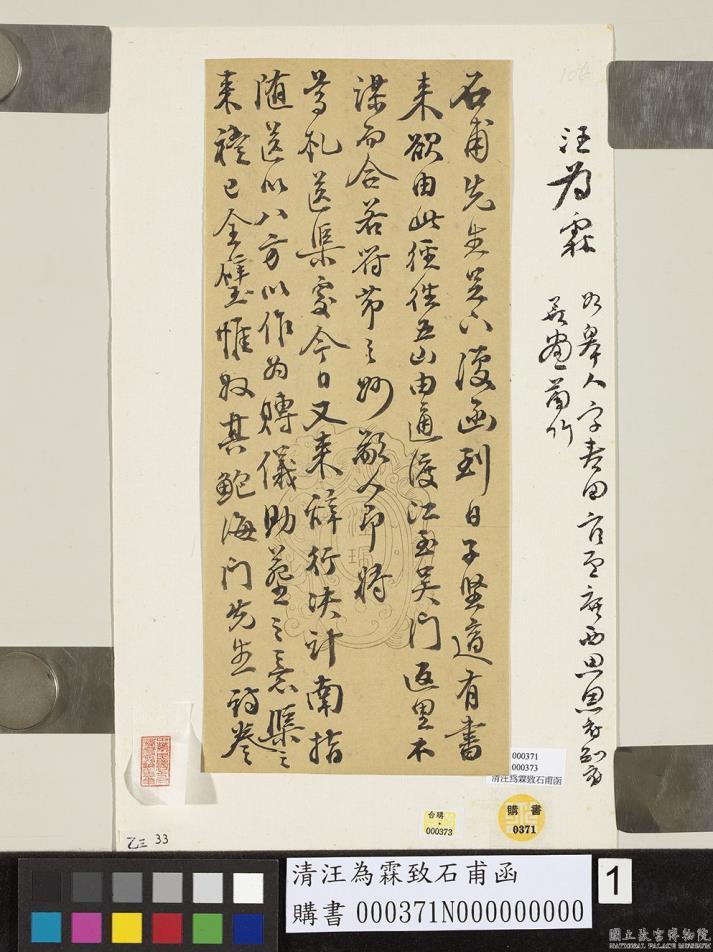 石甫先生足下復函到日子堅適有書
來欲由此徑往五山由通渡江至吳門返里不
謀而合若符節之妙敝人即將
尊札送渠處今日又來辭行決計南指
隨送以八方以作為賻儀助葬之意渠之
來禮已全璧惟收其鮑海門先生詩卷
汪為霖
如皋人字春田官至廣西思恩府知府
善畫蘭竹
106
000371
000373
清汪為霖致石甫函
台購
000373
購書
0371
乙三 33
清汪為霖致石甫函
購書 000371N000000000
1
國立故宮博物院
NATIONAL PALACE MUSEUM